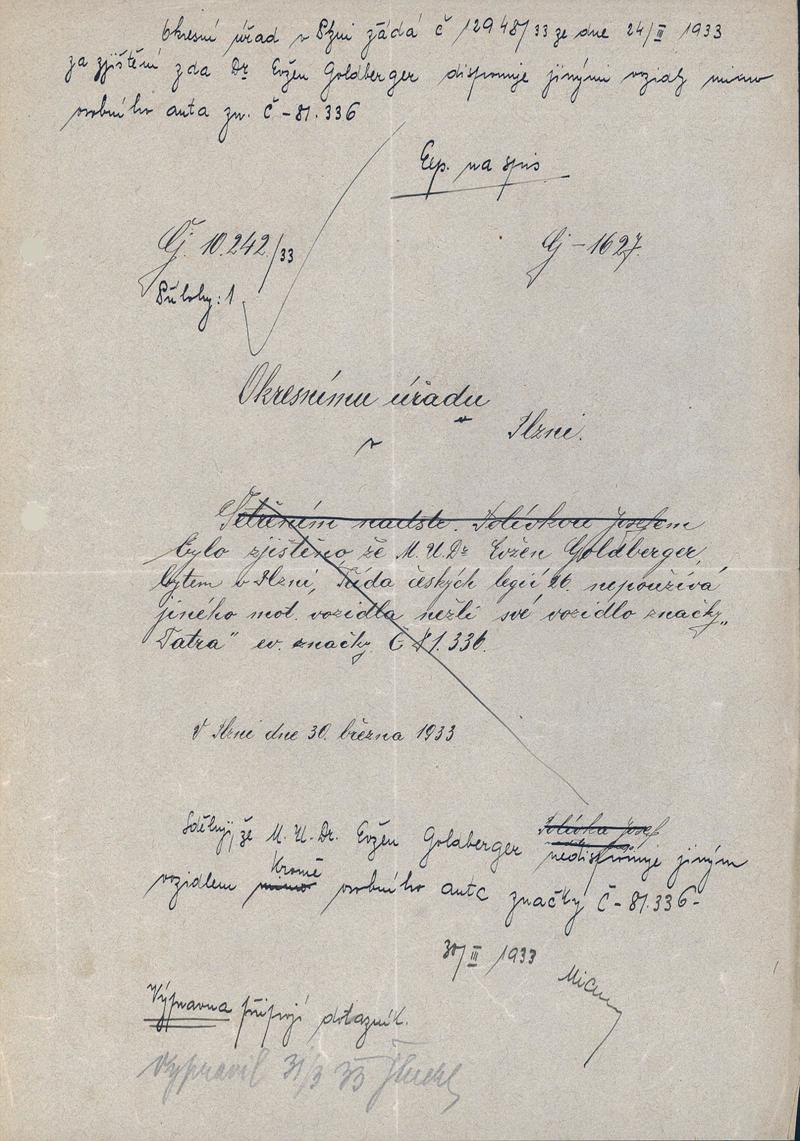 Okresní úřad v Plzni žádá č 12948/33 ze dne 24/III 1933
za zjištění zda Dr Evžen Goldberger disponuje jinými vozidly mimo
osobního auta zn. č – 81.336
Exp. na spis
Čj. 10.242/33
Gj – 1627.
Přílohy: 1
Okresnímu úřadu
v
Plzni.
Šetřením nadstr. Polívkou Josefem
bylo zjištěno že M.U.Dr Evžen Goldberger,
bytem v Plzni, Třída českých legií 26. nepoužívá
jiného mot. vozidla nežli své vozidlo značky „
Tatra" ev. značky Č 81.336.
V Plzni dne 30. března 1933
Polívka Josef
Sděluji, že M.U.Dr. Evžen Goldberger nedisponuje jiným
kromě
vozidlem mimo osobního auta značky Č – 81.336 –
30/III 1933
Výpravna připojí dotazník.
Vypravil 31/3 33